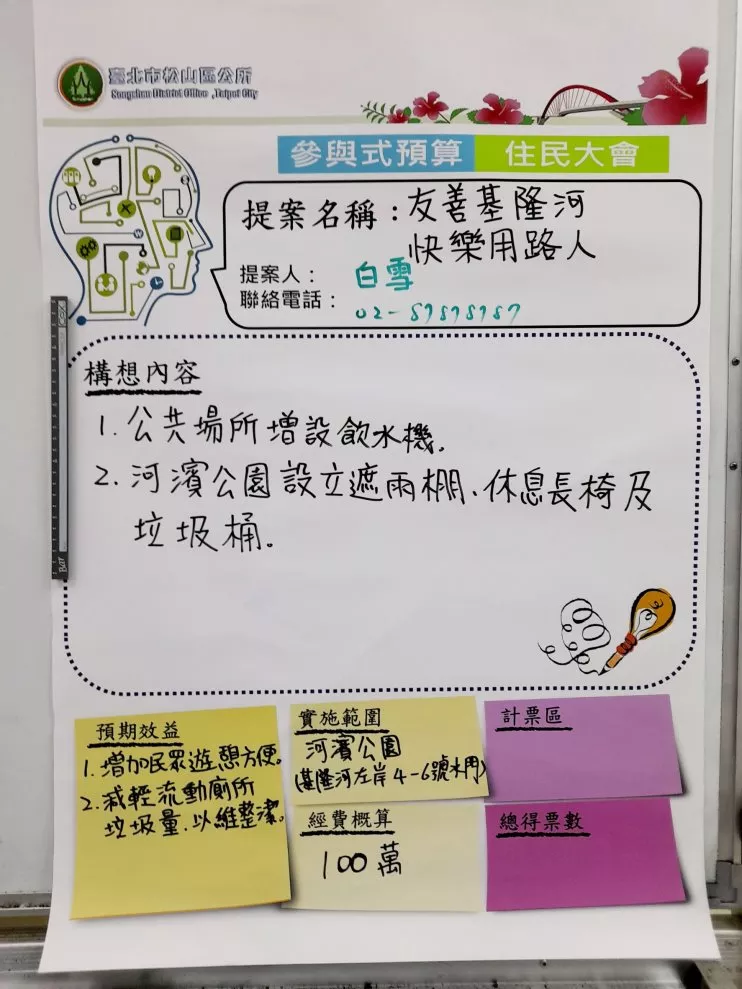 臺北市松山區公所
Songshan District Office ,Taipei City
參與式預算 住民大會
提案名稱：友善基隆河
快樂用路人
提案人： 白雪
聯絡電話： 02-89898987
構想內容
1. 公共場所增設飲水機.
2. 河濱公園設立遮雨棚、休息長椅及
垃圾桶.
預期效益
1. 增加民眾遊憩方便。
2. 減輕流動廁所
垃圾量、以維整潔。
實施範圍
河濱公園
(基隆河左岸4-6號水門)
經費概算
100萬
計票區
總得票數